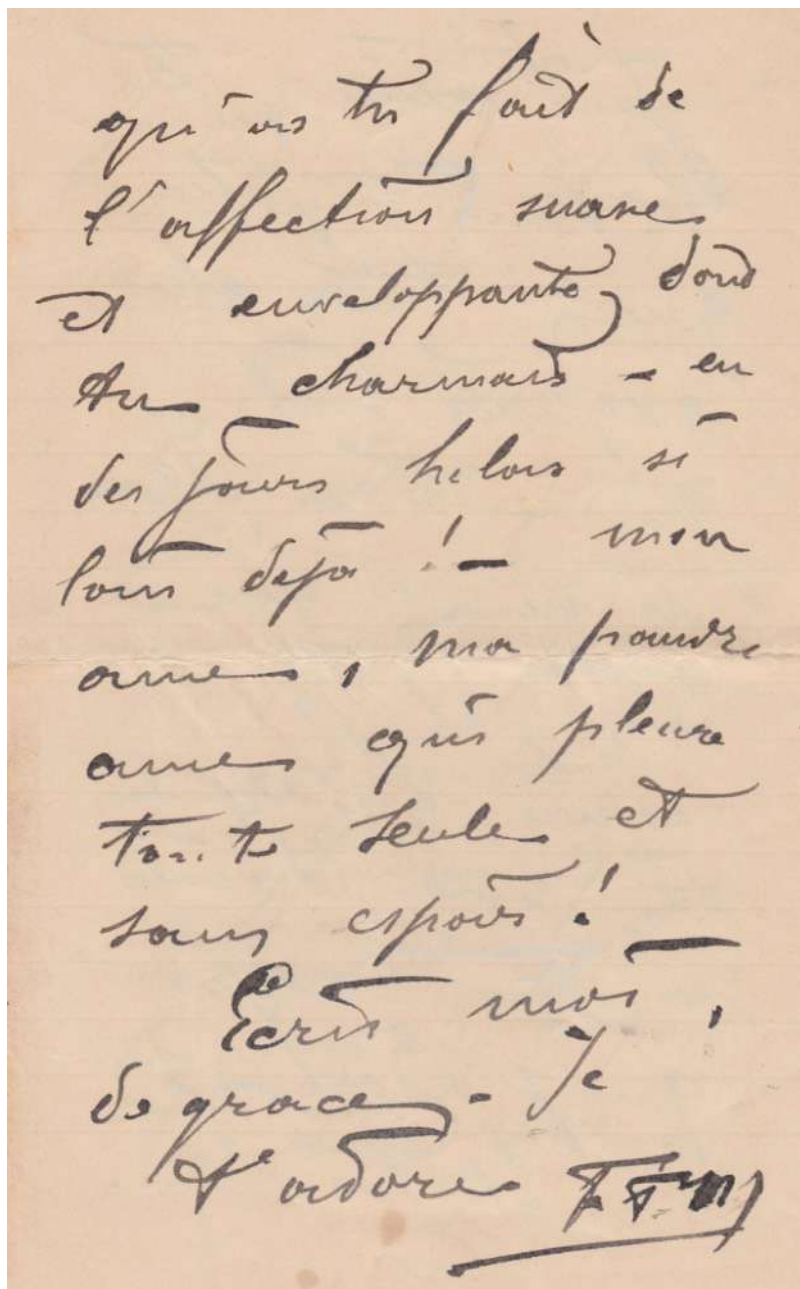 qu'as tu fait de
l'affection suave
et enveloppante, dont
tu charmais - en
des jours helas si
loin déjà ! - mon
ame, ma pauvre
ame qui pleure
toute seule et
sans espoir !
Ecris moi,
de grace - Je
t'adore